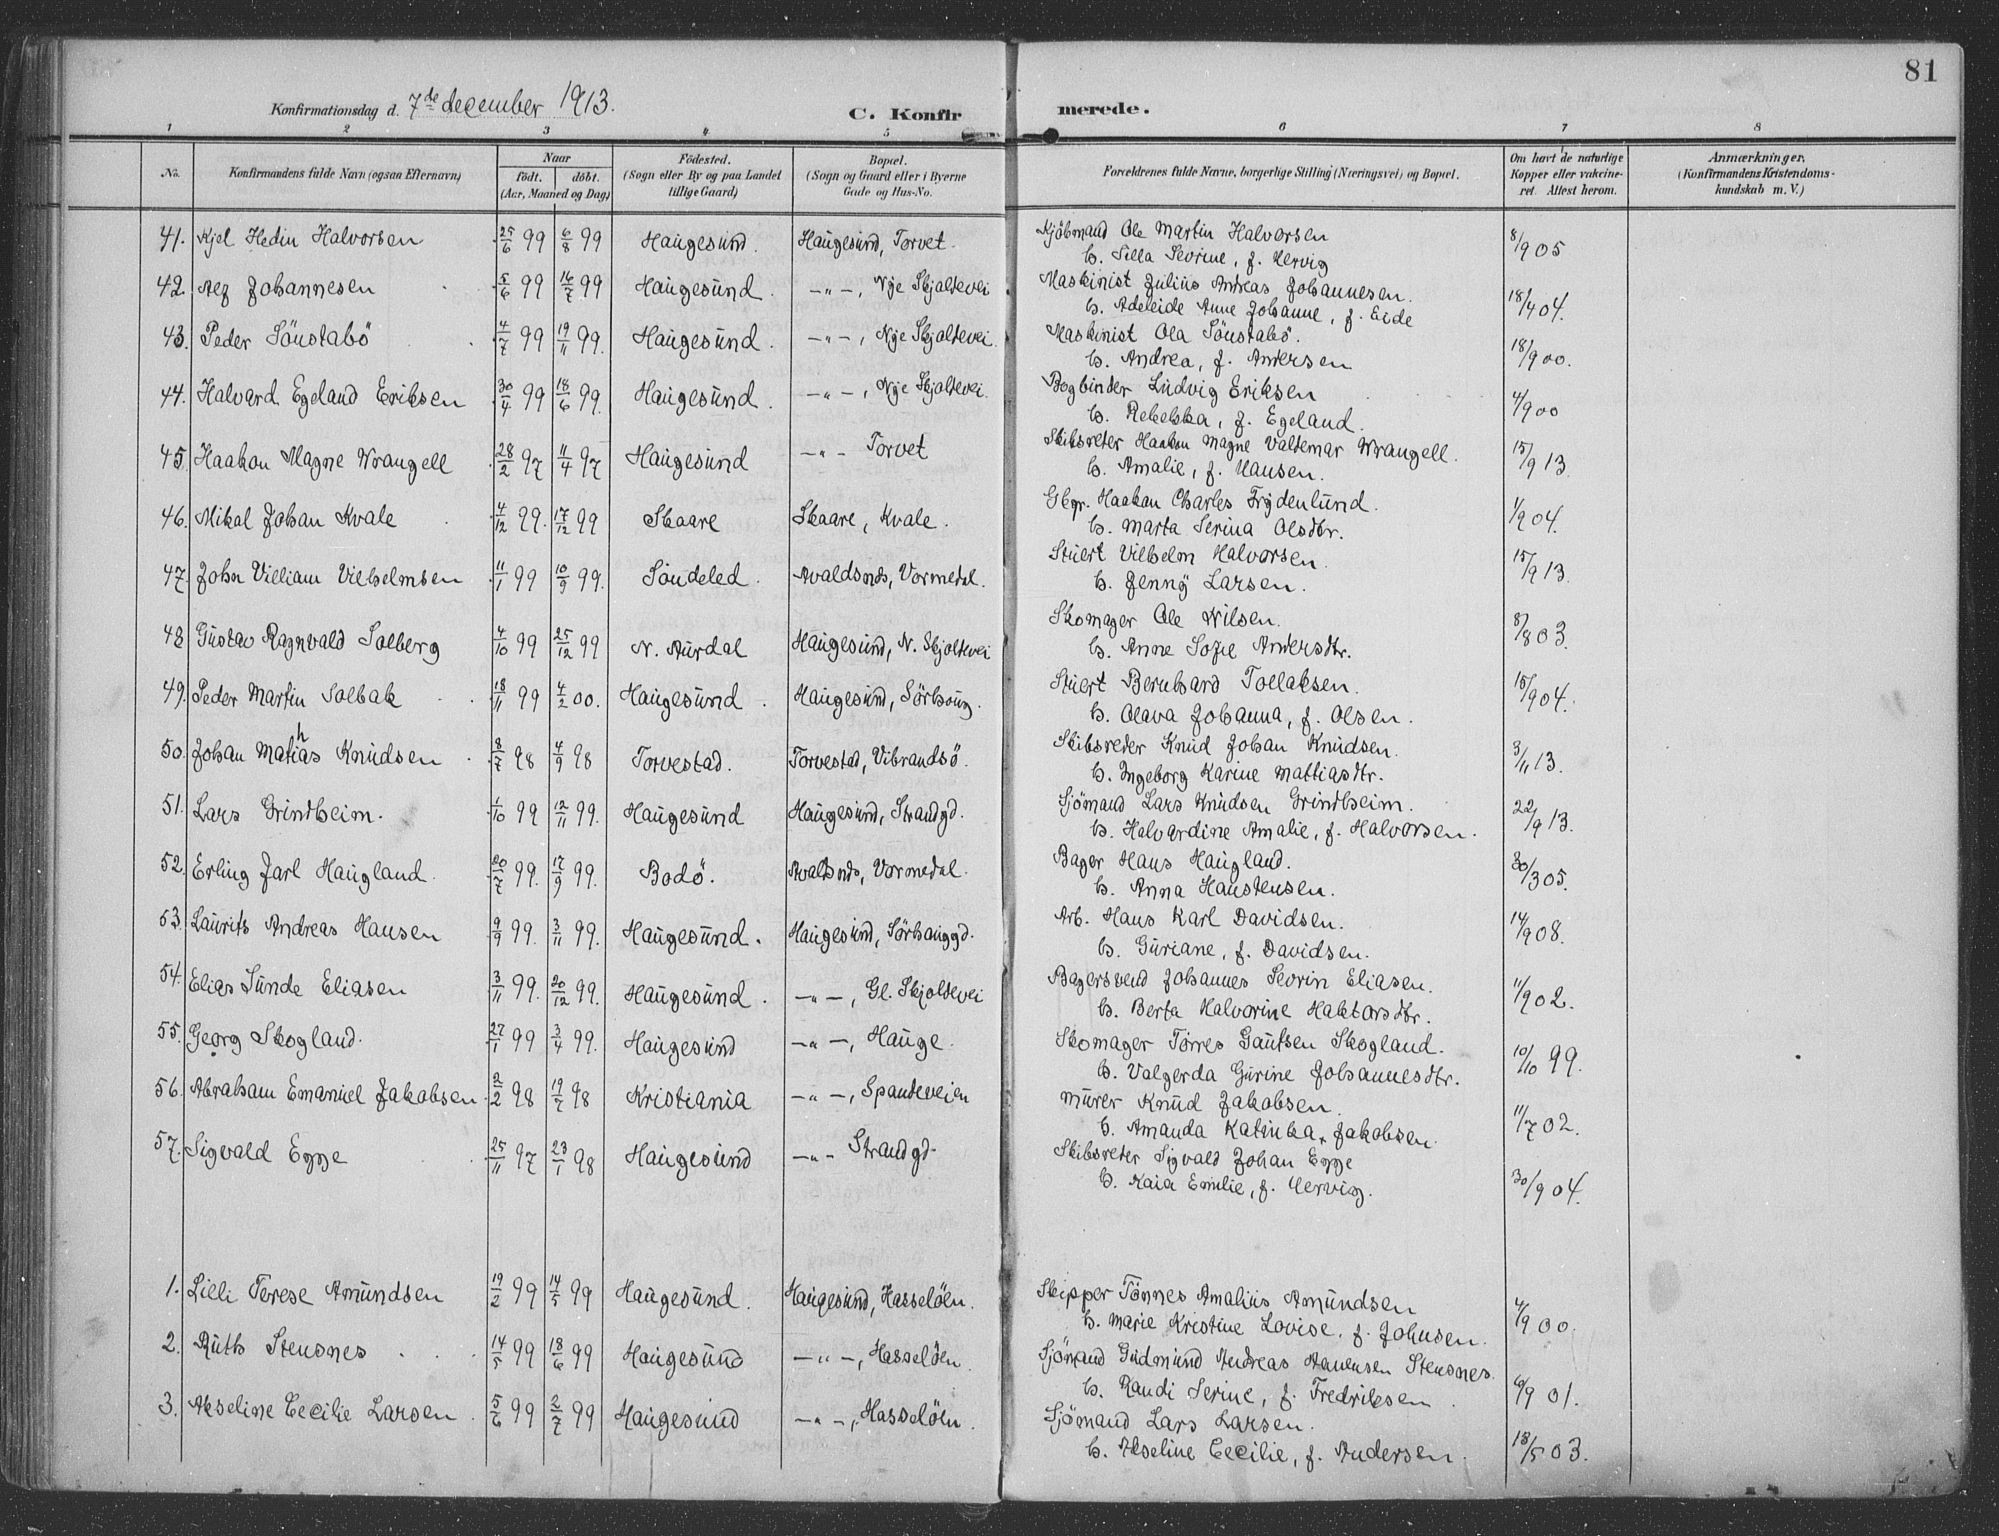 81
Konfirmationsdag d. 7de december 1913.
C. Konfirmerede.
1 2 3 4 5 6 7 8
No. Konfirmandens fulde Navn (ogsaa Efternavn) Naar født. døbt. (Aar, Maaned og Dag) Fødested. (Sogn eller By og paa Landet tillige Gaard) Bopæl. (Sogn og Gaard eller i Byerne Gade og Hus-No. Forældrenes fulde Navne, borgerlige Stilling (Næringsvei) og Bopæl. Om havt de naturlige Kopper eller vakcineret. Attest herom. Anmærkninger. (Konfirmandens Kristendomskundskab m. V.)
41. Kjel Hedin Halvorsen 25/6 99 6/8 99 Haugesund. Haugesund, Torvet. Kjøbmand Ole Martin Halvorsen 8/9 05
h. Silla Sevrine, f. Hervig
42. Alf Johannesen 5/6 99 16/7 99 Haugesund. -"-, Nye Skjoldevei Maskinist Julius Andreas Johannesen. 18/4 04.
h. Adeleide Anne Johanne, f. Eide
43. Peder Sönstabö 4/7 99 19/11 99. Haugesund. -"-, Nye Skjoldevei. Maskinist Ola Sönstabö. 18/9 00.
h. Andrea, f. Andersen
44. Halvard Egeland Eriksen 30/4 99 18/6 99. Haugesund. -"-, Nye Skjoldevei. Bogbinder Ludvig Eriksen 4/9 00
h. Rebekka, f. Egeland.
45. Haakon Magne Wrangell 28/2 97 11/4 97 Haugesund -"- Torvet Skibsreder Haakon Magne Valdemar Wrangell. 15/9 13.
h. Amalie, f. Hansen.
46. Mikal Johan Kvale 4/12 99. 17/12 99 Skaare Skaare, Kvale. Gbgr. Haakon Charles Frydenlund. 1/9 04.
h. Marta Serina Olsdtr.
47. John Villiam Vilhelmsen 11/1 99 10/9 99. Söndeled. Avaldsnds, Vormedal. Stuert Vilhelm Halvorsen. 15/9 13.
h. Jenny Larsen.
48. Gustav Ragnvald Solberg 4/10 99 25/12 99 N. Aurdal Haugesund, N. Skjoldevei Skomager Ole Nilsen. 8/8 03.
h. Anne Sofie Andersdtr.
49. Peder Martin Solbak 18/11 99 4/2 00. Haugesund. Haugesund, Sörhaug. Stuert Bernhard Tollaksen. 15/9 04.
h. Olava Johanna, f. Olsen.
50. Johan Mathias Knudsen 8/7 98 4/9 98 Torvestad. Torvestad, Vibrandsö. Skibsreder Knud Johan Knudsen. 3/11 13.
h. Ingeborg Karine Mattiasdtr.
51. Lars Grindheim. 1/10 99 12/11 99. Haugesund Haugesund, Strandgd. Sjömand Lars Knudsen Grindheim. 22/9 13.
h. Halvardine Amalie, f. Halvorsen.
52. Erling Jarl Haugland. 20/7 99. 17/9 99. Bodö. Avaldsnds, Vormedal. Bager Hans Haugland. 30/3 05.
h. Anna Hanstensen.
53. Laurits Andreas Hansen 9/9 99. 3/11 99. Haugesund. Haugesund, Sörhauggd. Arb. Hans Karl Davidsen. 14/9 08.
h. Guriane, f. Davidsen.
54. Elias Sunde Eliasen 3/11 99. 20/12 99. Haugesund. -"-, Gl. Skjoldevei Bagersvend Johannes Sevrin Eliasen. 11/9 02.
h. Berta Halvorine Haktorsdtr.
55. Georg Skogland. 27/1 99 3/4 99. Haugesund -"-, Hauge. Skomager Törres Gautsen Skogland. 10/10 99.
h. Valgerda Gurine Johannesdtr.
56. Abraham Emanuel Jakobsen. 2/2 98 19/7 98 Kristiania -"-, Spanneveien Murer Knud Jakobsen. 11/7 02.
h. Amanda Katinka, Jakobsen.
57. Sigvald Egge 25/11 97 23/1 98 Haugesund -"- Strandgd. Skibsreder Sigvald Johan Egge 30/9 04.
h. Kaia Emilie, f. Hervig.
1. Lilli Terese Amundsen 19/2 99 14/5 99 Haugesund. Haugesund, Hasselöen. Skipper Tönnes Amalius Amundsen 4/9 00.
h. Marie Kristine Lovise, f. Johnsen.
2. Ruth Stensnes 14/5 99 18/6 99 Haugesund -"-, Hasselöen. Sjömand Gudmund Andreas Stensnes. 6/9 01.
h. Randi Serine, f. Fredriksen
3. Akseline Cecilie Larsen 5/6 99 2/7 99 Haugesund -"-, Hasselöen. Sjömand Lars Larsen. 18/5 03.
h. Akseline Cecilie, f. Andersen.